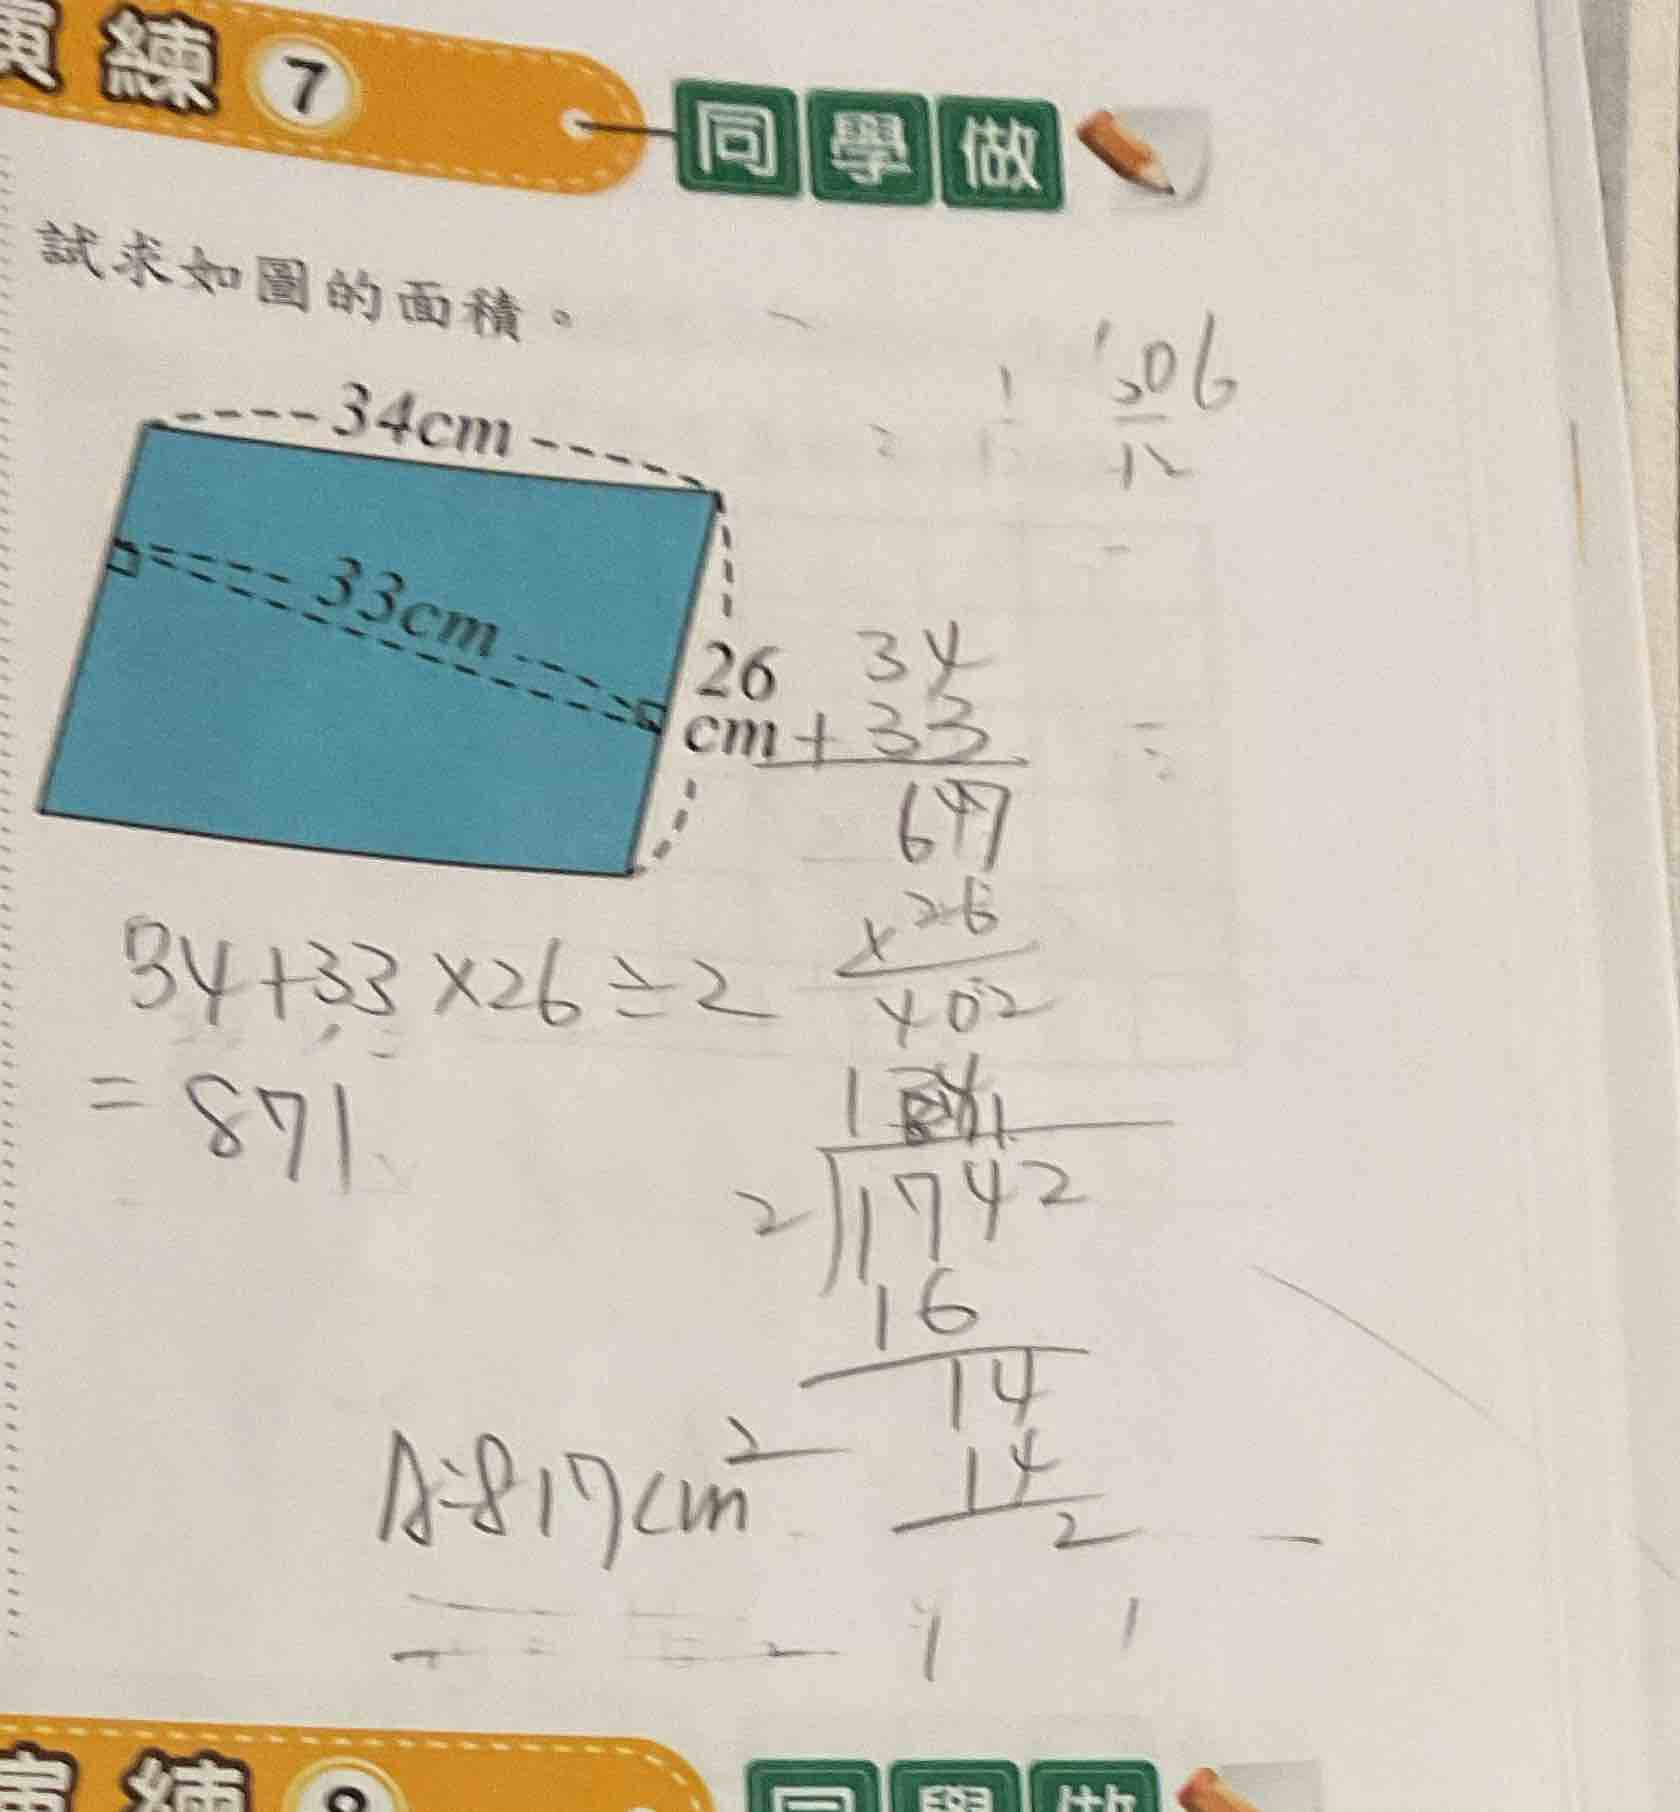 演練 7 同學做
試求如圖的面積。
34cm
33cm
26
cm
34
+33
67
×26
402
34+33×26÷2
=871
2)1742
16
14
14
2
A:817cm²
演練 8 同學做